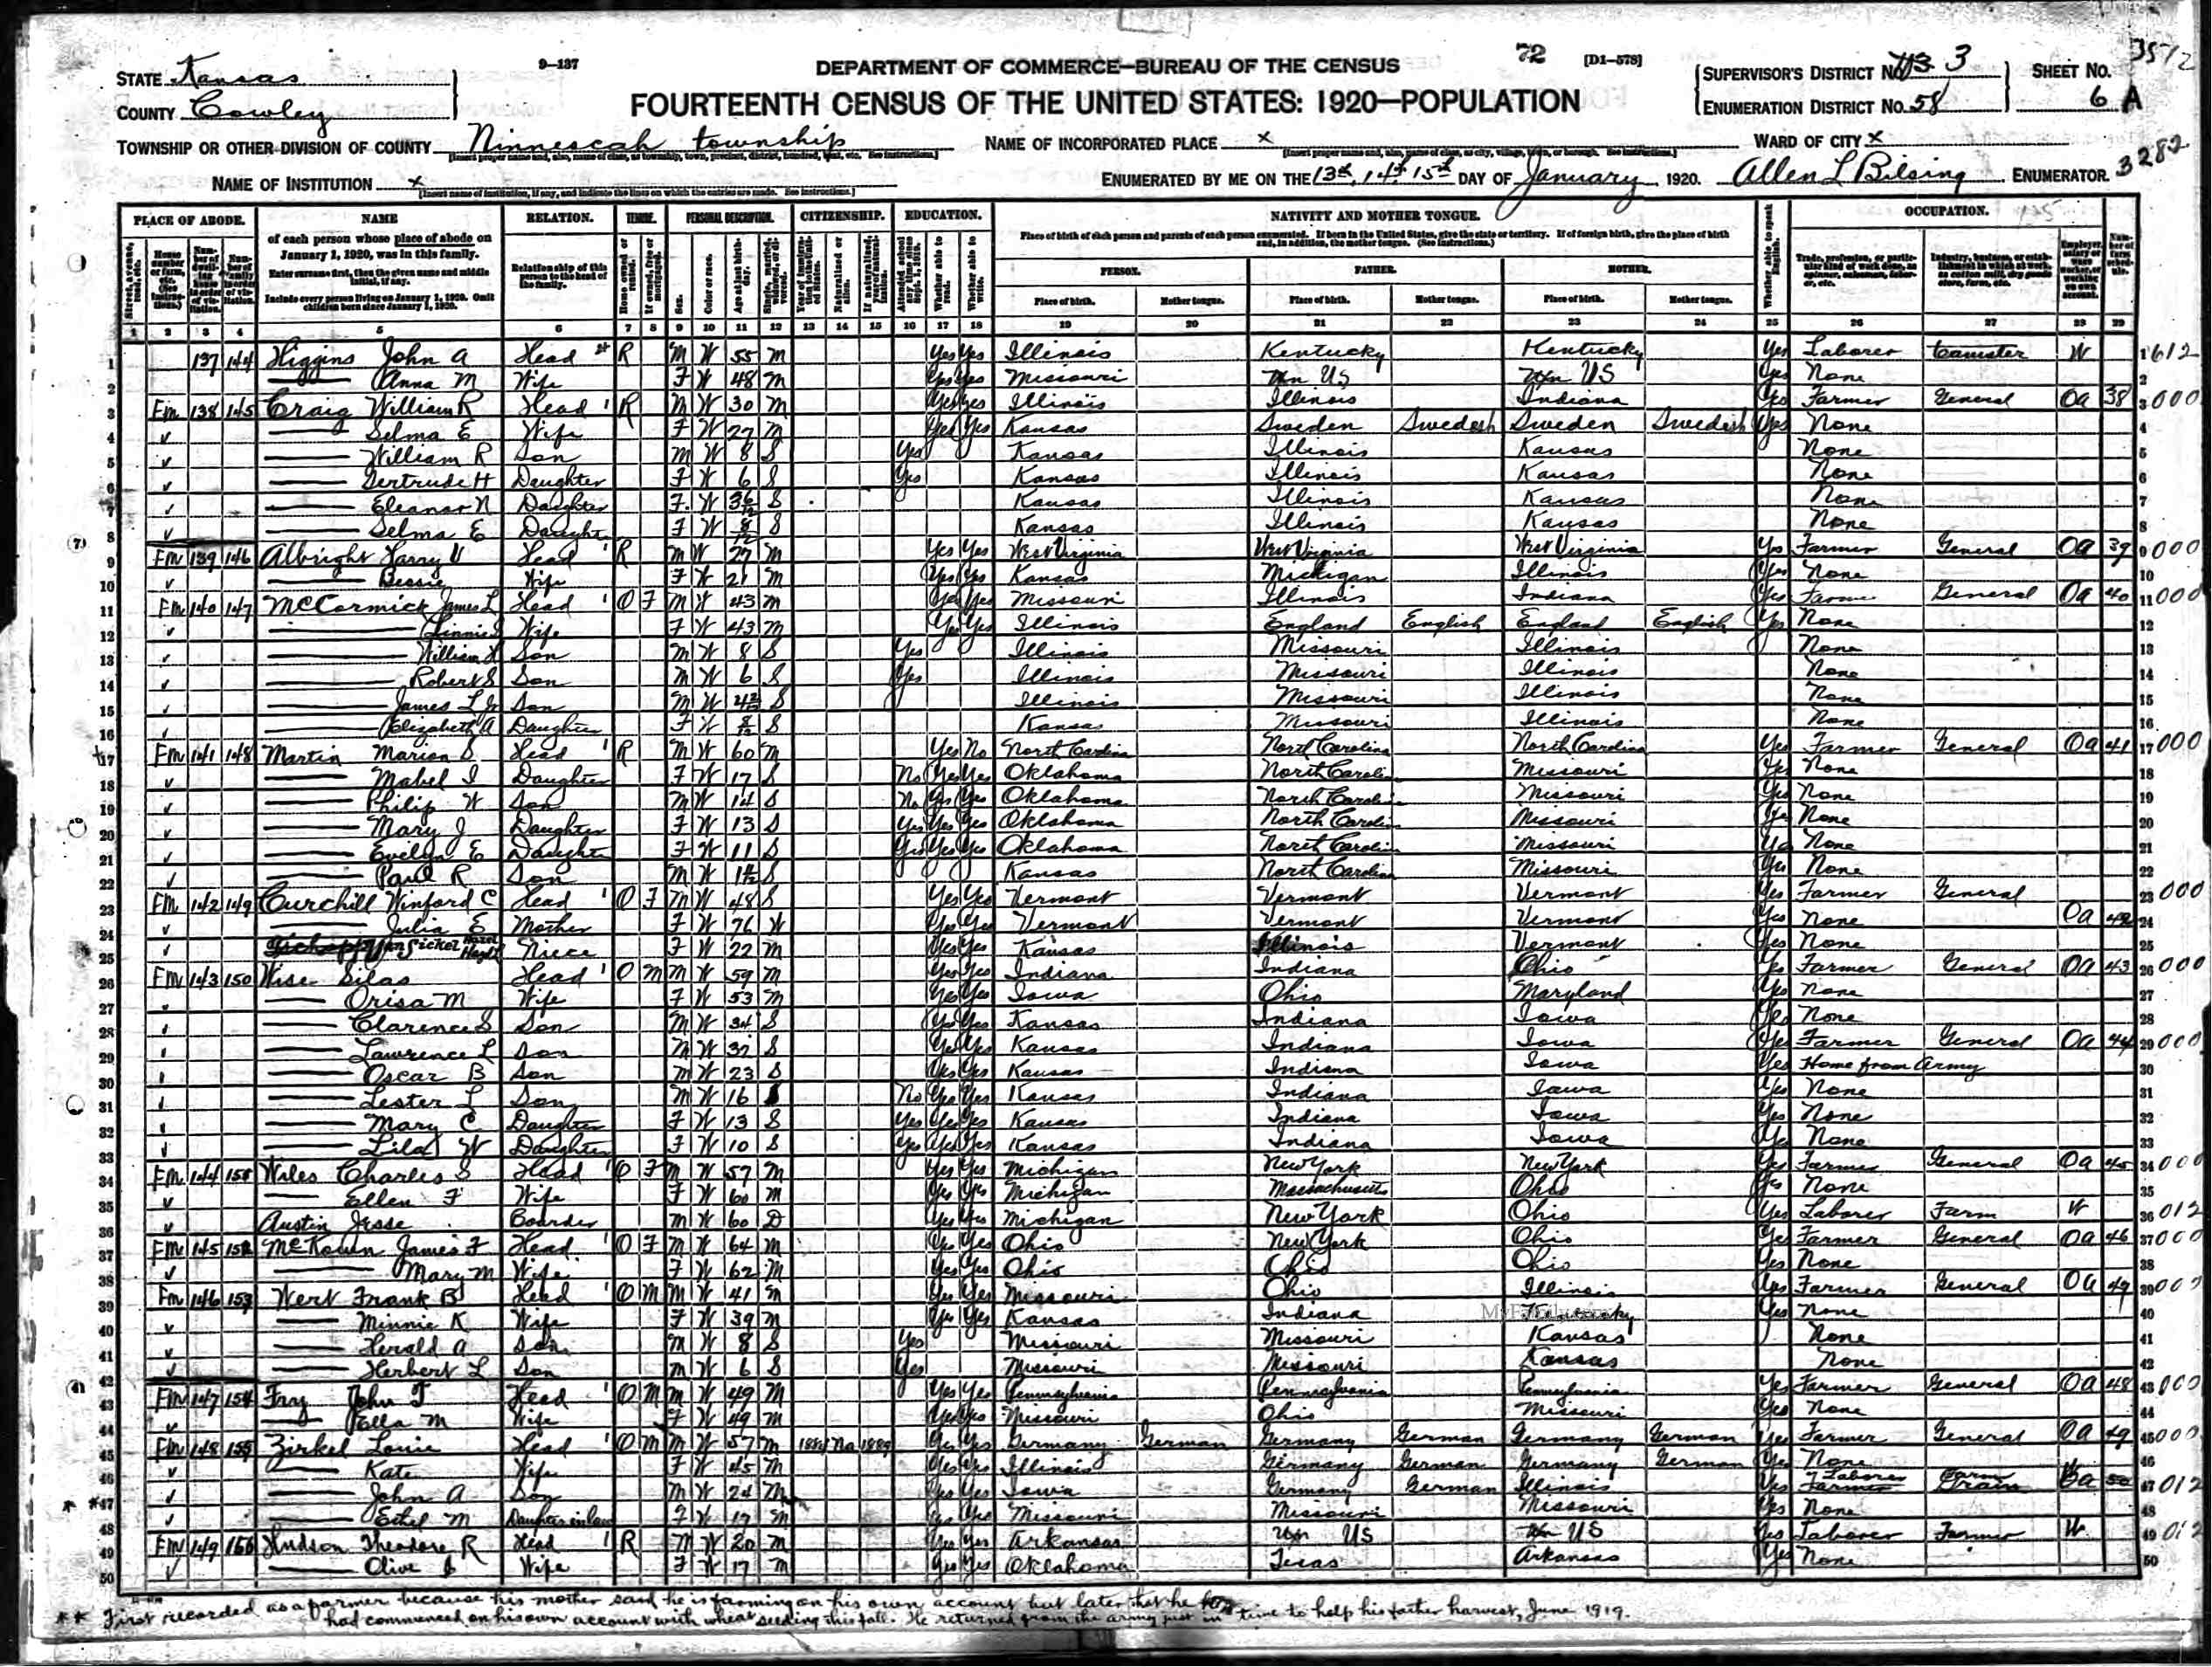 9—137
72 [D1-578]
3572
STATE Kansas
COUNTY Cowley
DEPARTMENT OF COMMERCE—BUREAU OF THE CENSUS
FOURTEENTH CENSUS OF THE UNITED STATES: 1920—POPULATION
SUPERVISOR'S DISTRICT No. 3
ENUMERATION DISTRICT No. 58
SHEET No. 6 A
TOWNSHIP OR OTHER DIVISION OF COUNTY Ninnescah township
NAME OF INCORPORATED PLACE x
WARD OF CITY x
NAME OF INSTITUTION x
[Insert name of institution, if any, and indicate the lines on which the entries are made. See instructions.]
ENUMERATED BY ME ON THE 13th, 14th 15th DAY OF January, 1920. Allen L Bilsing ENUMERATOR. 3282
PLACE OF ABODE. NAME RELATION. TENURE. PERSONAL DESCRIPTION. CITIZENSHIP. EDUCATION. NATIVITY AND MOTHER TONGUE. OCCUPATION.
of each person whose place of abode on January 1, 1920, was in this family.
Enter surname first, then the given name and middle initial, if any.
Include every person living on January 1, 1920. Omit children born since January 1, 1920.
Relationship of this person to the head of the family.
Place of birth of each person and parents of each person enumerated. If born in the United States, give the state or territory. If of foreign birth, give the place of birth and, in addition, the mother tongue. (See instructions.)
PERSON. FATHER. MOTHER.
Place of birth. Mother tongue. Place of birth. Mother tongue. Place of birth. Mother tongue.
1 2 3 4 5 6 7 8 9 10 11 12 13 14 15 16 17 18 19 20 21 22 23 24 25 26 27 28 29
1 137 144 Higgins John A Head R M W 55 M Yes Yes Illinois Kentucky Kentucky Yes Laborer W 1 612
2 Anna M Wife F W 48 M Yes Yes Missouri Un US Un US Yes None 2
3 Fm 138 145 Craig William R Head R M W 30 M Yes Yes Illinois Illinois Indiana Yes Farmer General Oa 38 3 000
4 Selma E Wife F W 27 M Yes Yes Kansas Sweden Swedesh Sweden Swedesh Yes None 4
5 William R Son M W 8 S Yes Kansas Illinois Kansas None 5
6 Gertrude H Daughter F W 6 S Yes Kansas Illinois Kansas None 6
7 Eleanor N Daughter F W 3 6/12 S Kansas Illinois Kansas None 7
8 Selma E Daughter F W 8/12 S Kansas Illinois Kansas None 8
9 Fm 139 146 Albright Harry V Head R M W 27 M Yes Yes West Virginia West Virginia West Virginia Yes Farmer General Oa 39 9 000
10 Bessie Wife F W 21 M Yes Yes Kansas Michigan Illinois Yes None 10
11 Fm 140 147 McCormick James L Head O F M W 43 M Yes Yes Missouri Illinois Indiana Yes Farmer General Oa 40 11 000
12 Wife F W 43 M Yes Yes Illinois England English England English Yes None 12
13 William H Son M W 8 S Yes Illinois Missouri Illinois None 13
14 Robert S Son M W 6 S Yes Illinois Missouri Illinois None 14
15 James L Jr Son M W S Illinois Missouri Illinois None 15
16 Elizabeth A Daughter F W S Kansas Missouri Illinois None 16
17 Fm 141 148 Martin Marion S Head R M W 60 M Yes No North Carolina North Carolina North Carolina Yes Farmer General Oa 41 17 000
18 Mabel I Daughter F W 17 S No Yes Yes Oklahoma North Carolina Missouri Yes None 18
19 Philip W Son M W 14 S No Yes Yes Oklahoma North Carolina Missouri Yes None 19
20 Mary J Daughter F W 13 S Yes Yes Yes Oklahoma North Carolina Missouri Yes None 20
21 Evelyn E Daughter F W 11 S Yes Yes Yes Oklahoma North Carolina Missouri Yes None 21
22 Paul R Son M W S Kansas North Carolina Missouri Yes None 22
23 Fm 142 149 Curchill Winford C Head O F M W 48 S Yes Yes Vermont Vermont Vermont Yes Farmer General 23 000
24 Julia E Mother F W 76 W Yes Yes Vermont Vermont Vermont Yes None Oa 42 24
25 Van Sickel Hazel Niece F W 22 M Yes Yes Kansas Illinois Vermont Yes None 25
26 Fm 143 150 Wise Silas Head O M M W 59 M Yes Yes Indiana Indiana Ohio Yes Farmer General Oa 43 26 000
27 Orisa M Wife F W 53 M Yes Yes Iowa Ohio Maryland Yes None 27
28 Clarence S Son M W 34 S Yes Yes Kansas Indiana Iowa Yes None 28
29 Lawrence L Son M W 31 S Yes Yes Kansas Indiana Iowa Yes Farmer General Oa 44 29 000
30 Oscar B Son M W 23 S Yes Yes Kansas Indiana Iowa Yes Home from Army 30
31 Lester L Son M W 16 S No Yes Yes Kansas Indiana Iowa Yes None 31
32 Mary C Daughter F W 13 S Yes Yes Yes Kansas Indiana Iowa Yes None 32
33 Lila W Daughter F W 10 S Yes Yes Yes Kansas Indiana Iowa Yes None 33
34 Fm 144 151 Wiles Charles S Head O F M W 57 M Yes Yes Michigan New York New York Yes Farmer General Oa 45 34 000
35 Ellen F Wife F W 60 M Yes Yes Michigan Massachusetts Ohio Yes None 35
36 Austin Jesse Boarder M W 60 D Yes Yes Michigan New York Ohio Yes Laborer Farm W 36 012
37 Fm 145 152 McKown James F Head O F M W 64 M Yes Yes Ohio New York Ohio Yes Farmer General Oa 46 37 000
38 Mary M Wife F W 62 M Yes Yes Ohio Ohio Ohio Yes None 38
39 Fm 146 153 Wert Frank B Head O M M W 41 M Yes Yes Missouri Ohio Illinois Yes Farmer General Oa 49 39 000
40 Minnie K Wife F W 39 M Yes Yes Kansas Indiana Kentucky Yes None 40
41 Herald A Son M W 8 S Yes Missouri Missouri Kansas None 41
42 Herbert L Son M W 6 S Yes Missouri Missouri Kansas None 42
43 Fm 147 154 Fry John T Head O M M W 49 M Yes Yes Pennsylvania Pennsylvania Pennsylvania Yes Farmer General Oa 48 43 000
44 Ella M Wife F W 49 M Yes Yes Missouri Ohio Missouri Yes None 44
45 Fm 148 155 Zirkel Louie Head O M M W 57 M 1884 Na 1889 Yes Yes Germany German Germany German Germany German Yes Farmer General Oa 49 45 000
46 Kate Wife F W 45 M Yes Yes Illinois Germany German Germany German Yes None 46
47 John A Son M W 24 M Yes Yes Iowa Germany German Illinois Yes Laborer Farmer Farm Grain Oa 50 47 012
48 Ethel M Daughter in law F W 19 M Yes Yes Missouri Missouri Missouri Yes None 48
49 Fm 149 156 Hudson Theodore R Head R M W 20 M Yes Yes Arkansas Un US Un US Yes Laborer Farmer W 49 012
50 Olive Wife F W 17 M Yes Yes Oklahoma Texas Arkansas Yes None 50
** First recorded as a farmer because his mother said he is farming on his own account but later that he
had commenced on his own account with wheat seeding this fall. He returned from the army just in time to help his father harvest, June 1919.